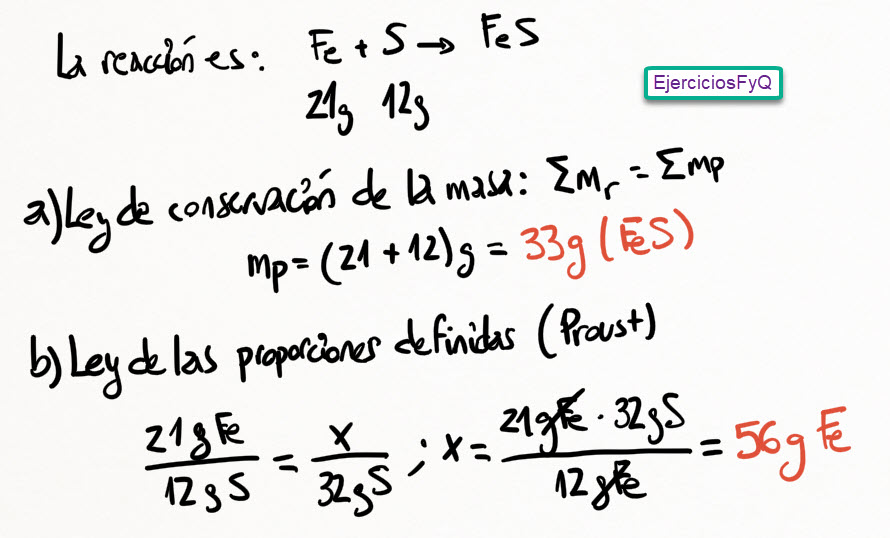 La reacción es: Fe + S → FeS
EjerciciosFyQ
21g 12g
a) Ley de conservación de la masa: ΣMr = Σmp
mp = (21 + 12)g = 33g (FeS)
b) Ley de las proporciones definidas (Proust)
21gFe / 12gS = x / 32gS ; x = 21gFe · 32gS / 12gFe = 56g Fe